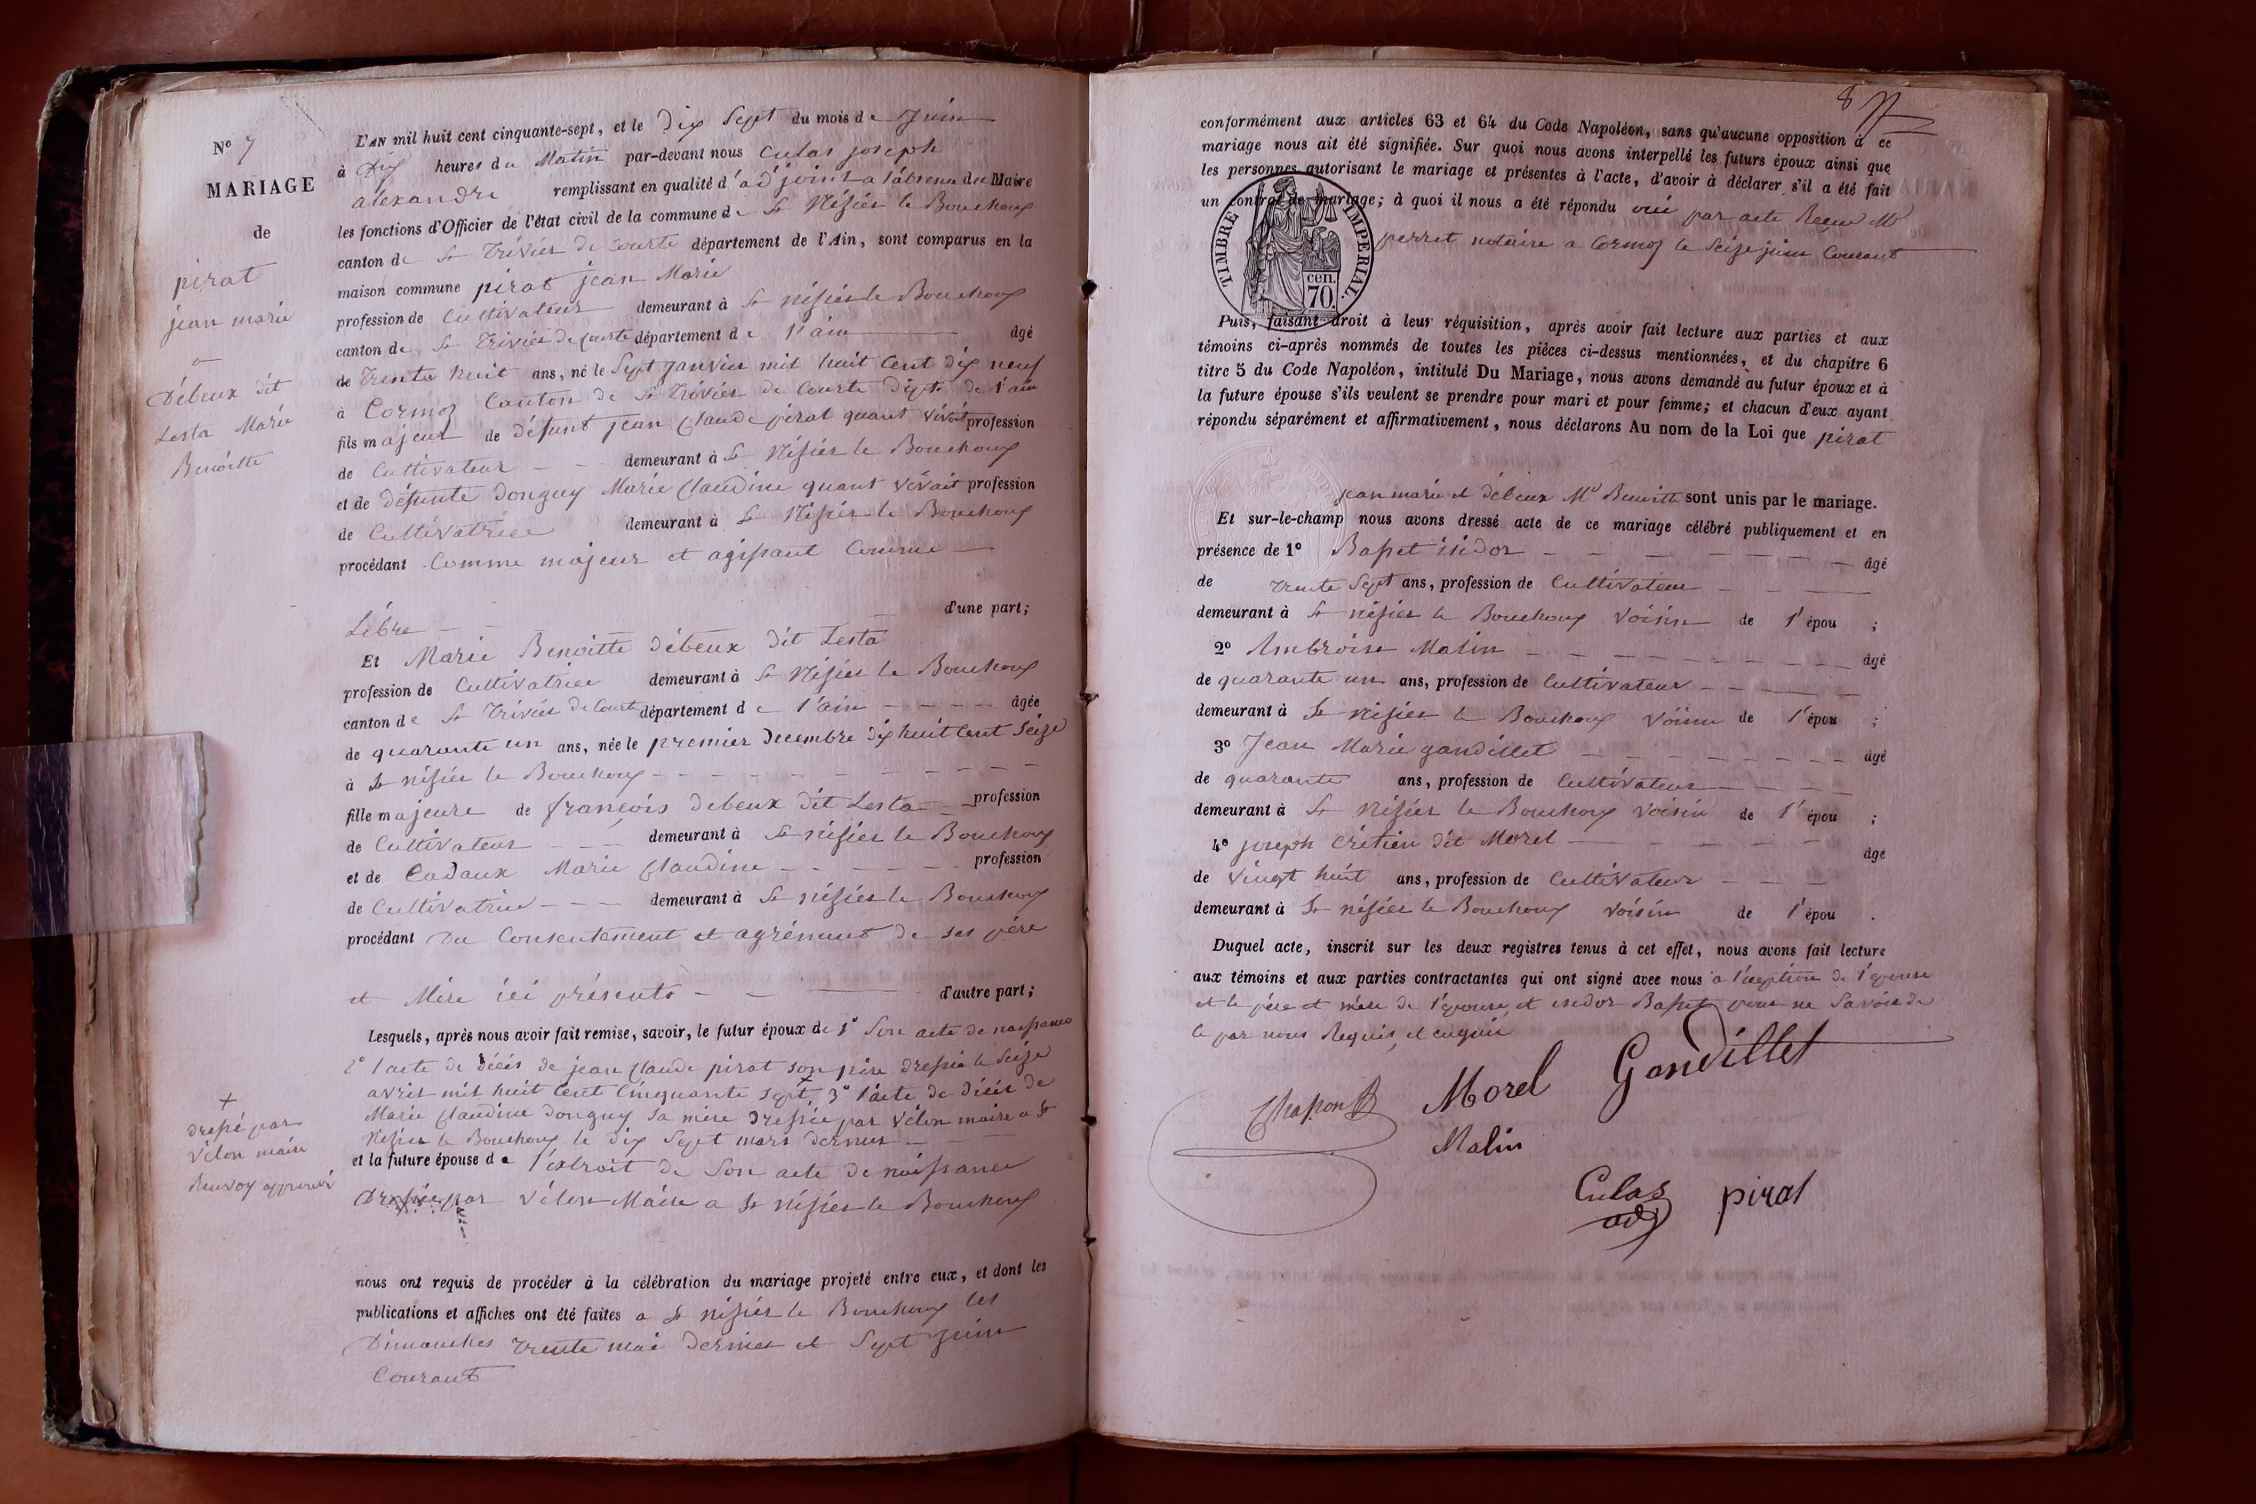 N° 7
MARIAGE
de
pirat
jean marie
Débeux dit
Lesta Marie
Benoitte
L'AN mil huit cent cinquante-sept, et le Dix Sept du mois de Juin
à Dix heures du Matin par-devant nous Culas joseph
alexandre remplissant en qualité d'adjoint a l'absence du Maire
les fonctions d'Officier de l'état civil de la commune de St Nisier le Bouchoux
canton de St Trivier de Courte département de l'Ain, sont comparus en la
maison commune pirat jean Marie
profession de Cultivateur demeurant à St Nisier le Bouchoux
canton de St Trivier de Courte département de l'ain âgé
de trente huit ans, né le Sept Janvier mil huit Cent dix neuf
à Cormoz Canton de St Trivier de Courte Dépt de l'ain
fils majeur de défunt jean Claude pirat quant vivait profession
de Cultivateur demeurant à St Nisier le Bouchoux
et de défunte Donguy Marie Claudine quant vivait profession
de Cultivatrice demeurant à St Nisier le Bouchoux
procédant Comme majeur et agissant Comme
Libre d'une part;
Et Marie Benoitte Débeux Dit Lesta
profession de Cultivatrice demeurant à St Nisier le Bouchoux
canton de St Trivier de Courte département de l'ain âgée
de quarante un ans, née le premier Decembre dix huit Cent Seize
à St nisier le Bouchoux
fille majeure de françois debeux dit Lesta profession
de Cultivateur demeurant à St nisier le Bouchoux
et de Cadaux Marie Claudine profession
de Cultivatrice demeurant à St nisier le Bouchoux
procédant Du Consentement et agrément de ses père
et Mère ici présents d'autre part;
Lesquels, après nous avoir fait remise, savoir, le futur époux de 1° Son acte de naissance
2° l'acte de décès de jean Claude pirat son père dressé le Seize
avril mil huit Cent Cinquante Sept 3° l'acte de décès de
Marie Claudine Donguy Sa mère Dressée par Vélon maire a St
Nisier le Bouchoux le dix Sept mars dernier
+
dressé par
Vélon maire
Renvoy approuvé
et la future épouse de l'extrait de Son acte de naissance
Dressée par Vélon Maire a St Nisier le Bouchoux
nous ont requis de procéder à la célébration du mariage projeté entre eux, et dont les
publications et affiches ont été faites a St nisier le Bouchoux les
Dimanches trente mai dernier et Sept Juin
Courant
8
conformément aux articles 63 et 64 du Code Napoléon, sans qu'aucune opposition à ce
mariage nous ait été signifiée. Sur quoi nous avons interpellé les futurs époux ainsi que
les personnes autorisant le mariage et présentes à l'acte, d'avoir à déclarer s'il a été fait
un contrat de mariage; à quoi il nous a été répondu oui par acte Reçu Me
perret notaire a Cormoz le Seize juin Courant
TIMBRE IMPERIAL.
cen.
70.
Puis, faisant droit à leur réquisition, après avoir fait lecture aux parties et aux
témoins ci-après nommés de toutes les pièces ci-dessus mentionnées, et du chapitre 6
titre 5 du Code Napoléon, intitulé Du Mariage, nous avons demandé au futur époux et à
la future épouse s'ils veulent se prendre pour mari et pour femme; et chacun d'eux ayant
répondu séparément et affirmativement, nous déclarons Au nom de la Loi que pirat
jean marie et débeux Me Benoitte sont unis par le mariage.
Et sur-le-champ nous avons dressé acte de ce mariage célébré publiquement et en
présence de 1° Basset isidor âgé
de trente Sept ans, profession de Cultivateur
demeurant à St nisier le Bouchoux Voisin de l'épou ;
2° Ambroise Malin âgé
de quarante un ans, profession de Cultivateur
demeurant à St nisier le Bouchoux Voisin de l'épou ;
3° Jean Marie gandillet âgé
de quarante ans, profession de Cultivateur
demeurant à St Nisier le Bouchoux Voisin de l'épou ;
4° joseph Crétien dit Morel âgé
de Vingt huit ans, profession de Cultivateur
demeurant à St nisier le Bouchoux Voisin de l'épou .
Duquel acte, inscrit sur les deux registres tenus à cet effet, nous avons fait lecture
aux témoins et aux parties contractantes qui ont signé avec nous a l'éxeption de l'épouse
et le père et mère de l'épouse, et isidor Basset pour ne Savoir de
ce par nous Requis et enquis
Chapon Morel Gandillet
Malin
Culas pirat
adj